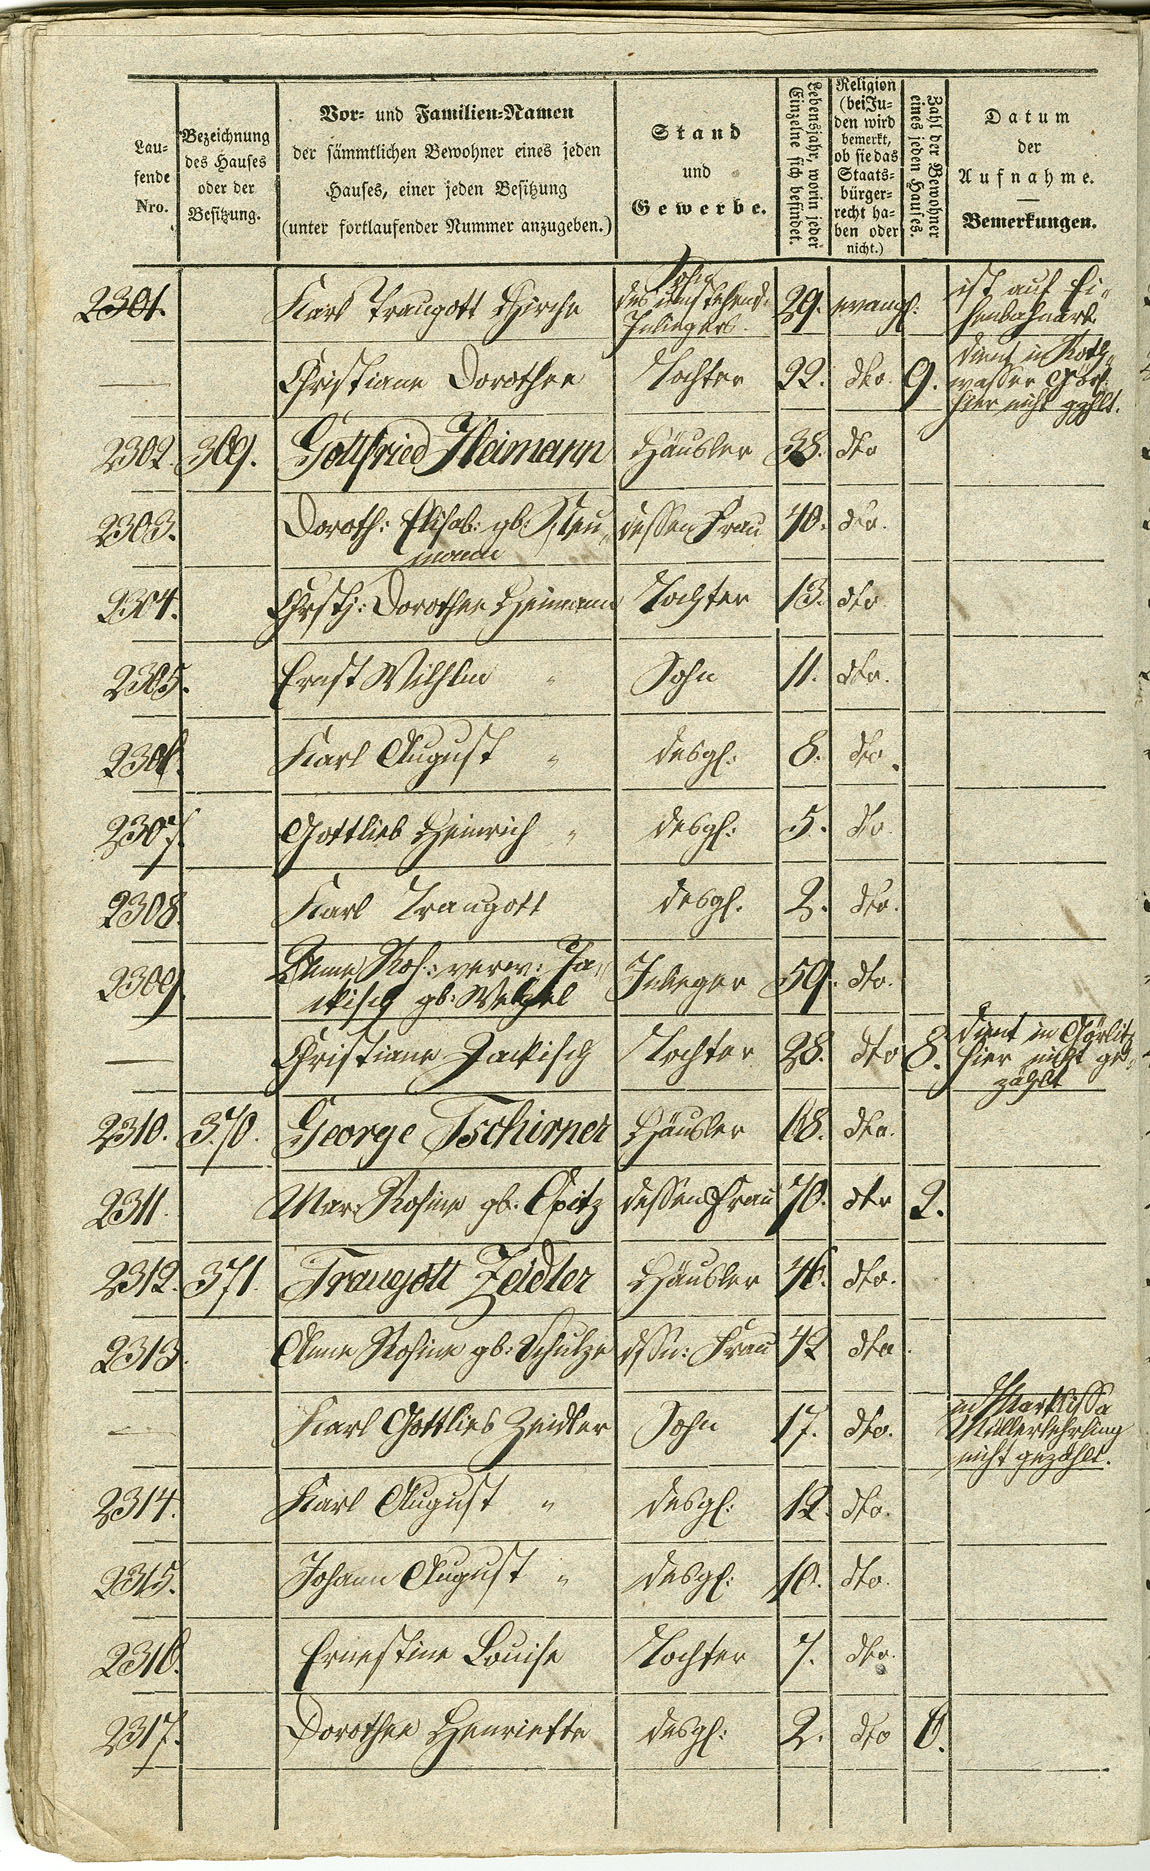 Lau-
fende
Nro.
Bezeichnung
des Hauses
oder der
Besitzung.
Vor- und Familien-Namen
der sämmtlichen Bewohner eines jeden
Hauses, einer jeden Besitzung
(unter fortlaufender Nummer anzugeben.)
Stand
und
Gewerbe.
Lebensjahr, worin jeder
Einzelne sich befindet.
Religion
(bei Ju-
den wird
bemerkt,
ob sie das
Staats-
bürger-
recht ha-
ben oder
nicht.)
Zahl der Bewohner
eines jeden Hauses.
Datum
der
Aufnahme.
Bemerkungen.
2301. Karl Traugott Hirche Sohn des umstehend. Inliegers. 29. evangl: ist auf Ei-
senbahnarb.
— Christiane Dorothee Tochter 22. dto. 9. dient in Roth-
wasser
hier nicht gzhlt.
2302. 369. Gottfried Heimann Häusler 38. dto
2303. Doroth: Elisab: gb: Neu- dessen Frau 40. dto.
mann
2304. Chrsth: Dorothee Heimann Tochter 13. dto
2305. Ernst Wilhlm " Sohn 11. dto.
2306. Karl August " desgl: 8. dto.
2307. Gottlieb Heinrich " desgl: 5. dto.
2308. Karl Traugott desgl. 2. dto.
2309. Anne Ros: verw: Ja- Inlieger 59. dto.
ckisch gb: Wetzel
— Christiane Jackisch Tochter 28. dto 8. dient in Görlitz
hier nicht ge-
zählt
2310. 370. George Tschirner Häusler 68. dto.
2311. Mar: Rosine gb. Opitz dessen Frau 70. dto 2.
2312. 371. Traugott Zeidler Häusler 46. dto.
2313. Anne Rosine gb: Schulze dssn: Frau 42 dto.
— Karl Gottlieb Zeidler Sohn 17. dto. in Marklissa
Müllerlehrling
nicht gezählt.
2314. Karl August " desgl: 12. dto.
2315. Johann August " desgl: 10. dto.
2316. Ernestine Louise Tochter 7. dto.
2317. Dorothee Henriette desgl: 2. dto 6.